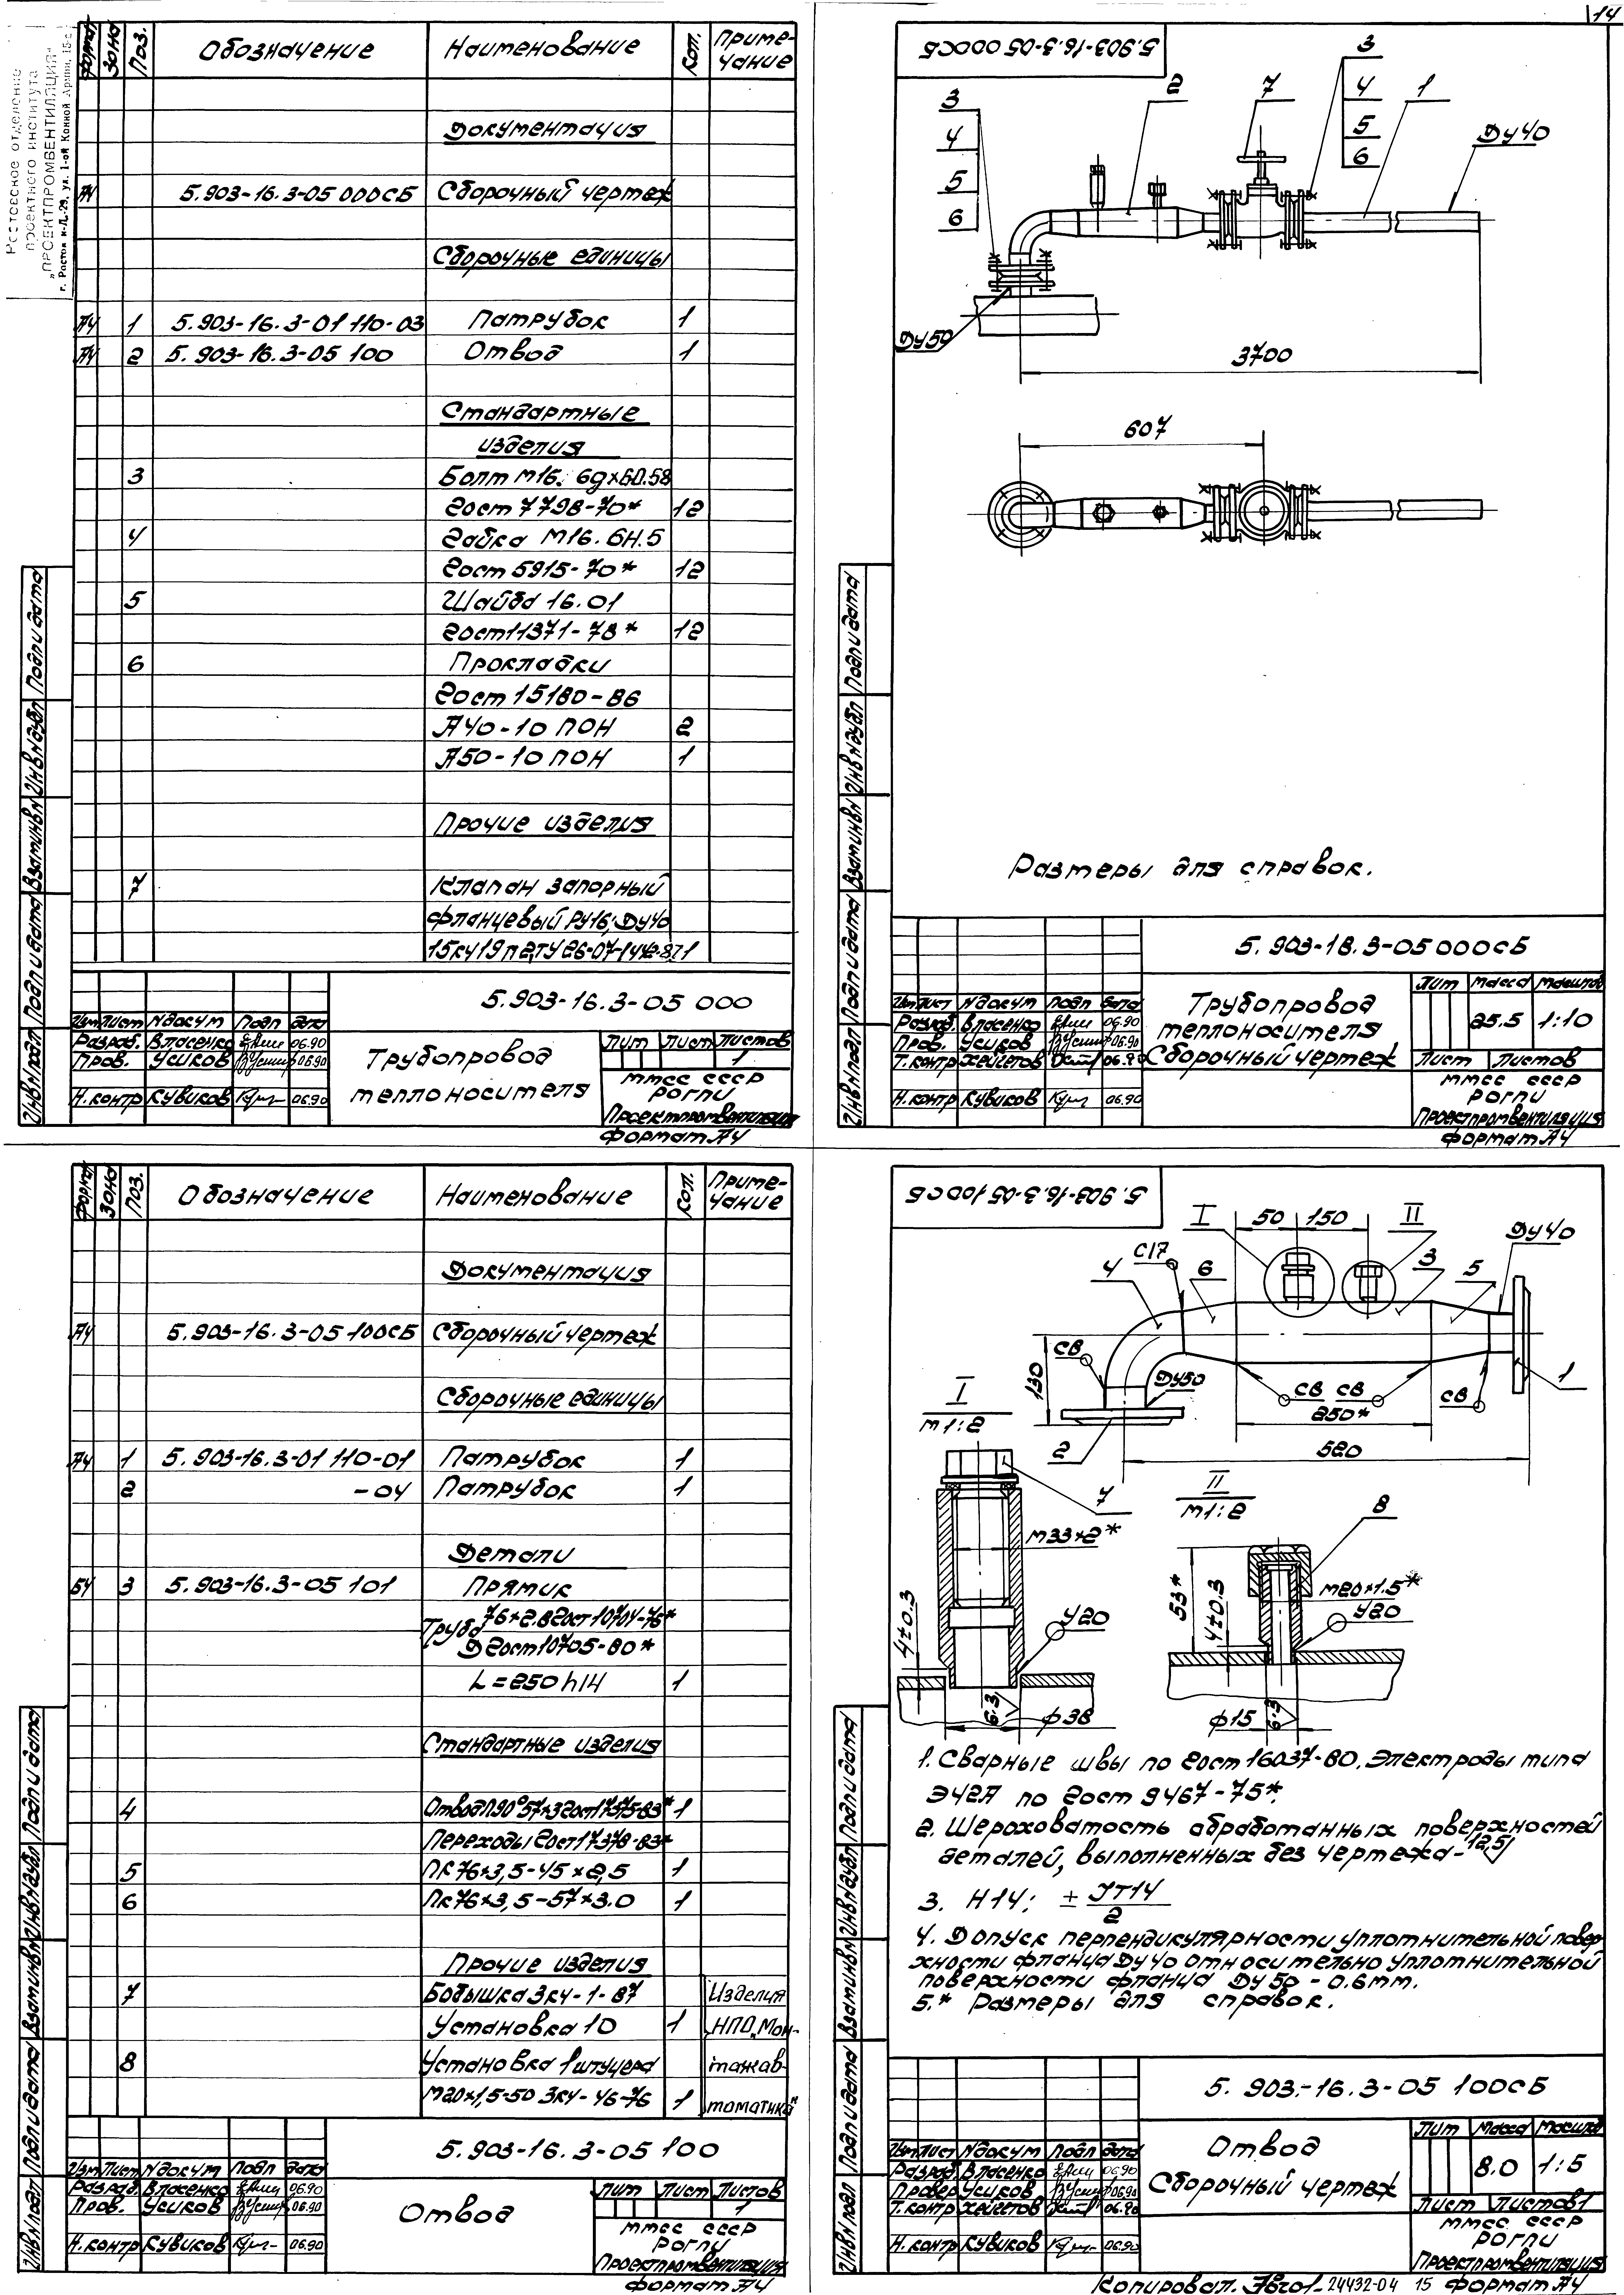 14
Ростовское отделение
проектного института
„ПРОЕКТПРОМВЕНТИЛЯЦИЯ"
г. Ростов н-Д.-29, ул. 1-ой Конной Армии, 15-с
Формат Зона Поз. Обозначение Наименование Кол. Приме-
чание
Документация
А4 5.903-16.3-05 000СБ Сборочный чертеж
Сборочные единицы
А4 1 5.903-16.3-01 110-03 Патрубок 1
А4 2 5.903-16.3-05 100 Отвод 1
Стандартные
изделия
3 Болт М16.6gх60.58
Гост 7798-70* 12
4 Гайка М16.6Н.5
Гост 5915-70* 12
5 Шайба 16.01
Гост 11371-78* 12
6 Прокладки
Гост 15180-86
А40-10 ПОН 2
А50-10 ПОН 1
Прочие изделия
7 Клапан запорный
фланцевый Ру16, Ду40
1
5.903-16.3-05 000
Изм Лист № докум Подп Дата
Разраб. Власенко 06.90
Пров. Усиков 06.90
Н.контр Кувиков 06.90
Трубопровод
теплоносителя
Лит Лист Листов
1
ММСС СССР
РОГПИ
Проектпромвентиляция
Формат А4
Инв № подл Подп и дата Взам инв № Инв № дубл Подп и дата
5.903-16.3-05 000СБ
3
4
5
6
2
7
3
4
5
6
1
Ду40
Ду50
3700
607
Размеры для справок.
5.903-18.3-05 000СБ
Изм Лист № докум Подп Дата
Разраб. Власенко 06.90
Пров. Усиков 06.90
Т.контр Хейгетов 06.90
Н.контр Кувиков 06.90
Трубопровод
теплоносителя
Сборочный чертеж
Лит Масса Масштаб
25.5 1:10
Лист Листов
ММСС СССР
РОГПИ
Проектпромвентиляция
Формат А4
Инв № подл Подп и дата Взам инв № Инв № дубл Подп и дата
Формат Зона Поз. Обозначение Наименование Кол. Приме-
чание
Документация
А4 5.903-16.3-05 100СБ Сборочный чертеж
Сборочные единицы
А4 1 5.903-16.3-01 110-01 Патрубок 1
2 -04 Патрубок 1
Детали
БЧ 3 5.903-16.3-05 101 Прямик
Труба 76×2.8 Гост 10704-76*
Д Гост 10705-80*
L=250 h14 1
Стандартные изделия
4 Отвод П90°57×3 Гост 17375-83* 1
Переходы Гост 17378-83*
5 ПК 76×3,5-45×2,5 1
6 ПК 76×3,5-57×3.0 1
Прочие изделия
7 Бобышка ЗК4-1-87 Изделия
Установка 10 1 НПО„Мон-
8 Установка 1 штуцера тажав-
М20×1,5-50 ЗК4-46-76 1 томатика"
5.903-16.3-05 100
Изм Лист № докум Подп Дата
Разраб. Власенко 06.90
Пров. Усиков 06.90
Н.контр Кувиков 06.90
Отвод
Лит Лист Листов
1
ММСС СССР
РОГПИ
Проектпромвентиляция
Формат А4
Инв № подл Подп и дата Взам инв № Инв № дубл Подп и дата
5.903-16.3-05 100СБ
I 50 150 II
Ду40
С17
4 6 3 5
С8
130
Ду50
С8 С8
250*
С8
1
2
580
I
М1:2
7
М33×2*
4±0.3
У20
6.3
ф38
II
М1:2
8
53*
4±0.3
М20×1.5*
У20
ф15
6.3
1. Сварные швы по Гост 16037-80. Электроды типа
Э42А по Гост 9467-75*.
2. Шероховатость обработанных поверхностей
деталей, выполненных без чертежа - 12,5
3. H14; ± IT14/2
4. Допуск перпендикулярности уплотнительной повер-
хности фланца Ду40 относительно уплотнительной
поверхности фланца Ду 50 - 0.6мм.
5.* Размеры для справок.
5.903-16.3-05 100СБ
Изм Лист № докум Подп Дата
Разраб. Власенко 06.90
Провер Усиков 06.90
Т.контр Хейгетов 06.90
Н.контр Кувиков 06.90
Отвод
Сборочный чертеж
Лит Масса Масштаб
8.0 1:5
Лист Листов 1
ММСС СССР
РОГПИ
Проектпромвентиляция
Копировал. 24432-04 15 Формат А4
Инв № подл Подп и дата Взам инв № Инв № дубл Подп и дата